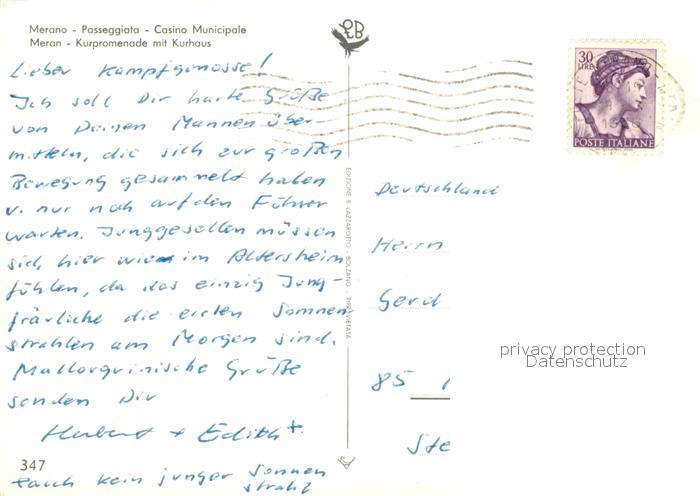 Merano - Passeggiata - Casino Municipale
Meran - Kurpromenade mit Kurhaus
Lieber Kampfgenosse!
Ich soll Dir harte Grüße
von Deinen Mannen über-
mitteln, die sich zur großen
Bewegung gesammelt haben
u. nur noch auf den Führer
warten. Junggesellen müssen
sich hier wie im Altersheim
fühlen, da das einzig Jung-
fräuliche die ersten Sonnen-
strahlen am Morgen sind.
Mallorquinische Grüße
senden Dir
Herbert + Edith +
347
auch kein junger Sonnen
strahl
EDIZIONE S. LAZZAROTTO - BOLZANO - RIPR. VIETATA
30
LIRE
POSTE ITALIANE
Deutschland
Herrn
Gerd
85
Ste
privacy protection
Datenschutz